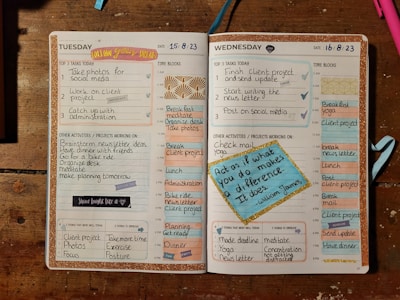 TUESDAY
DATE 15·8·23
TOP 3 TASKS TODAY
TIME BLOCKS
1 Take photos for
social media
2 Work on client
project
3 Catch up with
administration
Breakfast
meditate
Organise desk
Take photos
Break
Client project
Lunch
Administration
Bike ride
news letter
Client project
Planning
Get ready
Dinner
OTHER ACTIVITIES / PROJECTS WORKING ON
Brainstorm newsletter idea
Have dinner with friends
Go for a bike ride
Organise desk
meditate
make planning tomorrow
Client project
Photos
Focus
Take more time
Exercise
Posture
WEDNESDAY
DATE 16·8·23
TOP 3 TASKS TODAY
TIME BLOCKS
1 Finish Client project
and send update
2 Start writing the
news letter
3 Post on social media
Breakfast
yoga
Client
project
Lunch
Post
Client
project
Break
mail
Client
project
Send update
Have dinner
OTHER ACTIVITIES / PROJECTS WORKING ON
Check mail
Yoga
Act as if what
you do makes
a difference
It does
- William James
made deadline
Yoga
Newsletter
meditate
Concentration
not getting
distracted